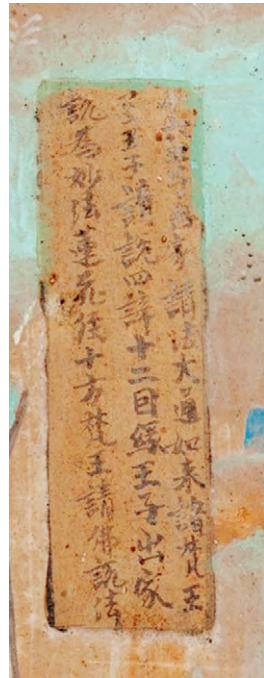 請法大通如来諸梵王
王子請説四諦十二因緣王子出家
説爲妙法蓮花經十方梵王請佛説法